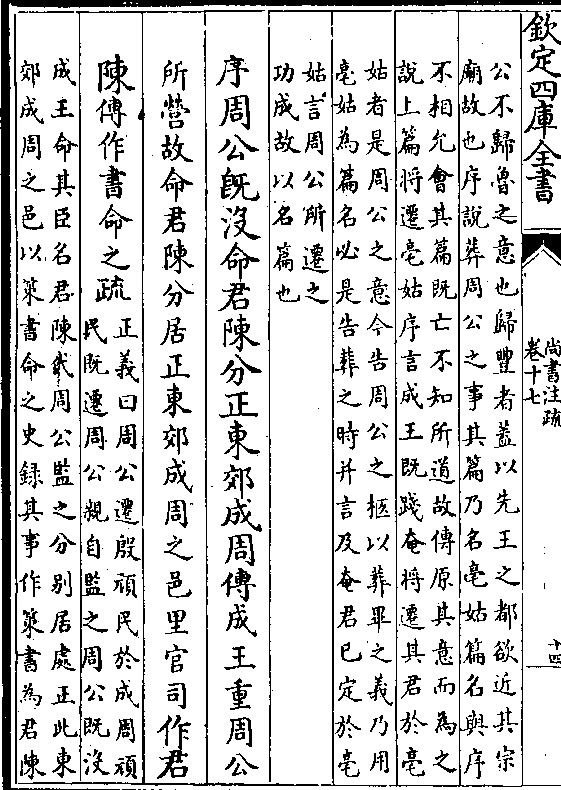 欽定四庫全書
尚書注疏
卷十七
十四
公不歸魯之意也歸豐者蓋以先王之都欲近其宗
廟故也序說葬周公之事其篇乃名亳姑篇名與序
不相允會其篇既亡不知所道故傳原其意而為之
說上篇將遷亳姑序言成王既踐奄將遷其君於亳
姑者是周公之意今告周公之柩以葬畢之義乃用
亳姑為篇名必是告葬之時并言及奄君已定於亳
姑言周公所遷之
功成故以名篇也
序周公既沒命君陳分正東郊成周傳成王重周公
所營故命君陳分居正東郊成周之邑里官司作君
陳傳作書命之疏
正義曰周公遷殷頑民於成周頑
民既遷周公親自監之周公既沒
成王命其臣名君陳代周公監之分別居處正此東
郊成周之邑以策書命之史録其事作策書為君陳